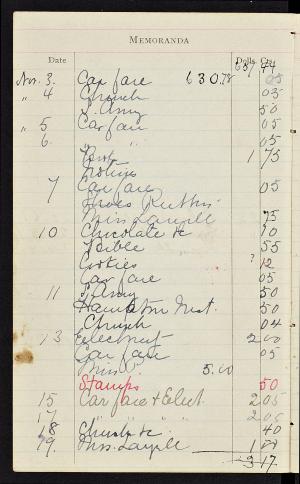 MEMORANDA
Date Dolls. Cts.
Nov. 3. Car fare 630.78 05
" 4 Church 05
S. Army 50
" 5 Car fare 05
6. " " 05
1 75
7 Car fare 05
Shoes Rubbers
Miss 75
10 Chocolate &c 10
Bible 55
Cookies 12
Car fare 05
11 S. Army 50
Hampton Inst. 50
Church 04
13 Elect 2 00
Car fare 05
Miss 5.00
Stamps 50
15 Car fare & Elect 2 05
17 " " " 2 05
18 Church &c 40
19. Miss 1